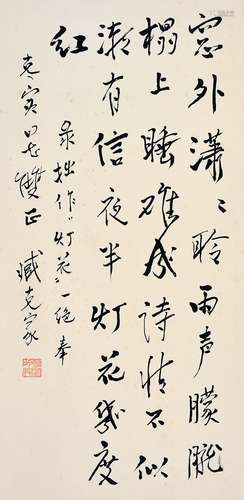 窗外瀟〻聆雨声朦胧
榻上睡难成诗情不似
潮有信夜半灯花幾度
红
录拙作“灯花”一绝奉
克寅同志雙正 臧克家